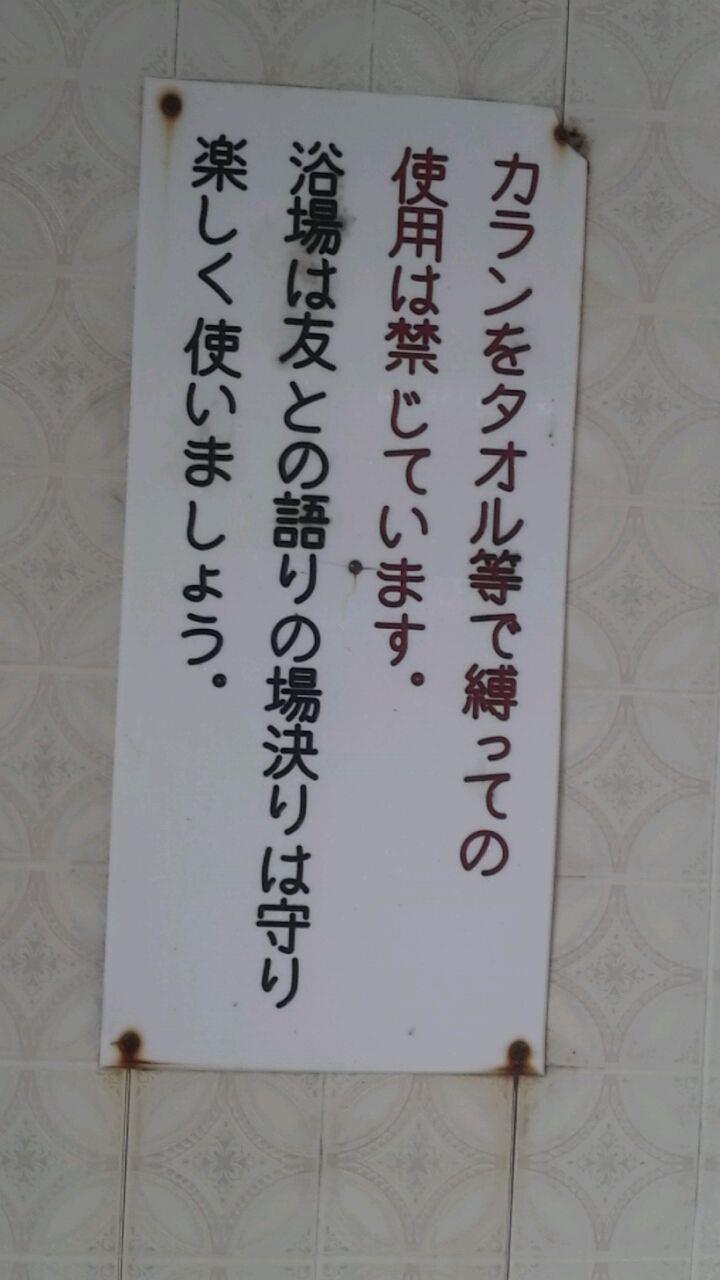 カランをタオル等で縛っての
使用は禁じています。
浴場は友との語りの場決りは守り
楽しく使いましょう。